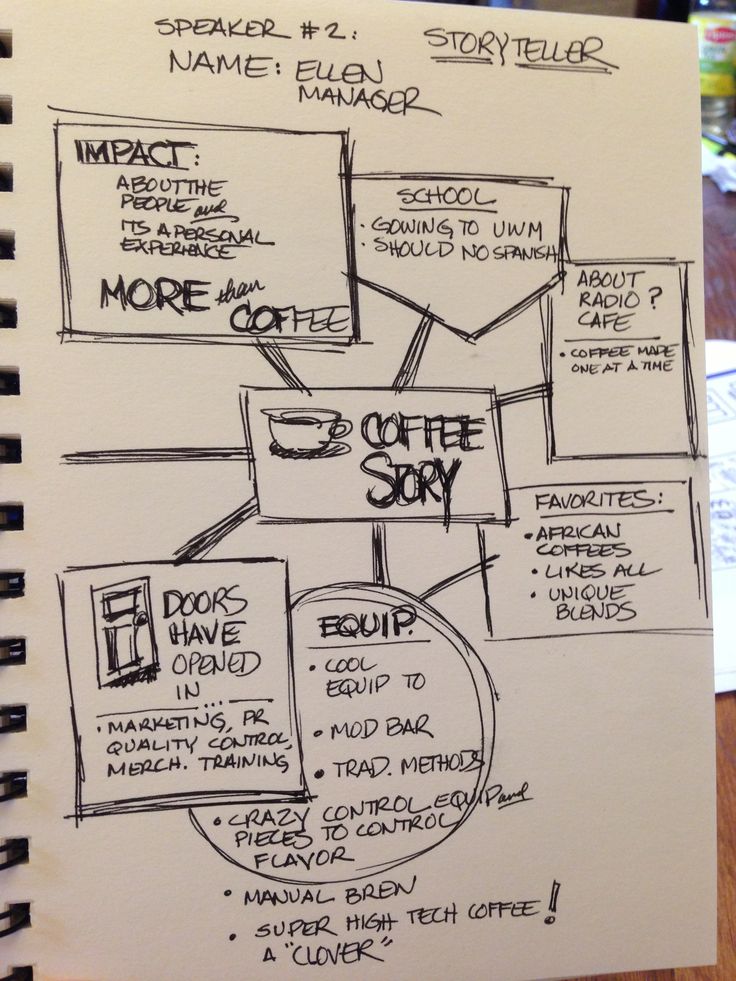 SPEAKER #2:
STORYTELLER
NAME: ELLEN
MANAGER
IMPACT:
ABOUT THE
PEOPLE and
ITS A PERSONAL
EXPERIENCE
MORE than
COFFEE
SCHOOL
• GOWING TO UWM
• SHOULD NO SPANISH
ABOUT
RADIO ?
CAFE
• COFFEE MADE
ONE AT A TIME
COFFEE
STORY
FAVORITES:
• AFRICAN
COFFEES
• LIKES ALL
• UNIQUE
BLENDS
DOORS
HAVE
OPENED
IN...
• MARKETING, PR
QUALITY CONTROL,
MERCH. TRAINING
EQUIP.
• COOL
EQUIP TO
• MOD BAR
• TRAD. METHODS
• CRAZY CONTROL EQUIP and
PIECES TO CONTROL
FLAVOR
• MANUAL BREW
• SUPER HIGH TECH COFFEE!
A "CLOVER"